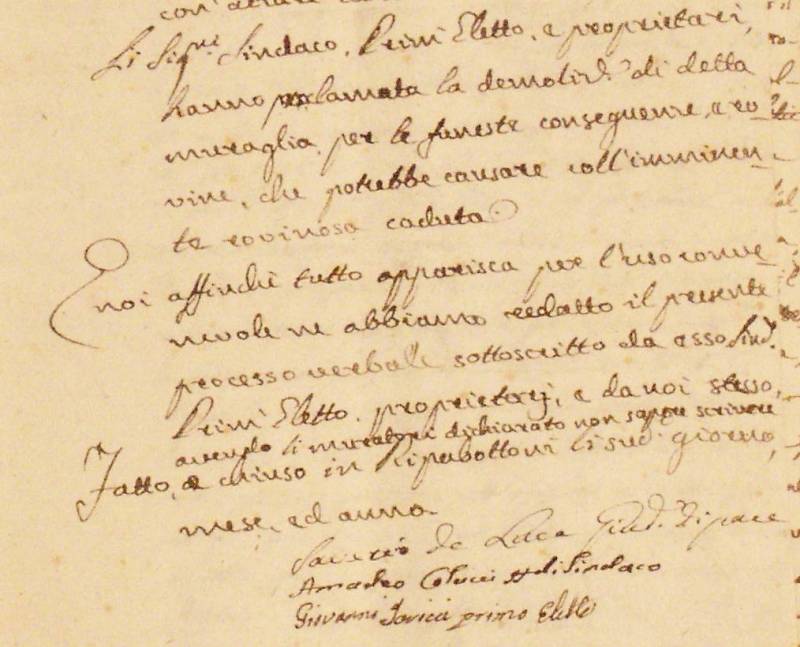 con
Li Sig.ri Sindaco, Primi Eletto, e proprietari,
hanno la demoliz.e di detta
muraglia, per le funeste conseguenze, e ro=
vine, che potrebbe causare coll'imminen=
te rovinosa caduta.
E noi affinchè tutto apparisca per l'uso conve=
nevole ne abbiamo redatto il presente
processo verbale sottoscritto da esso Sind.o
Primi Eletto, proprietarj, e da noi stesso,
avendo li muratori dichiarato non sapere scrivere
Fatto, e chiuso in Ripabottoni li sud.i giorno,
mese, ed anno.
Saverio de Luca Giud. di pace
Amadeo Colucci Sindaco
Giovanni primo Eletto